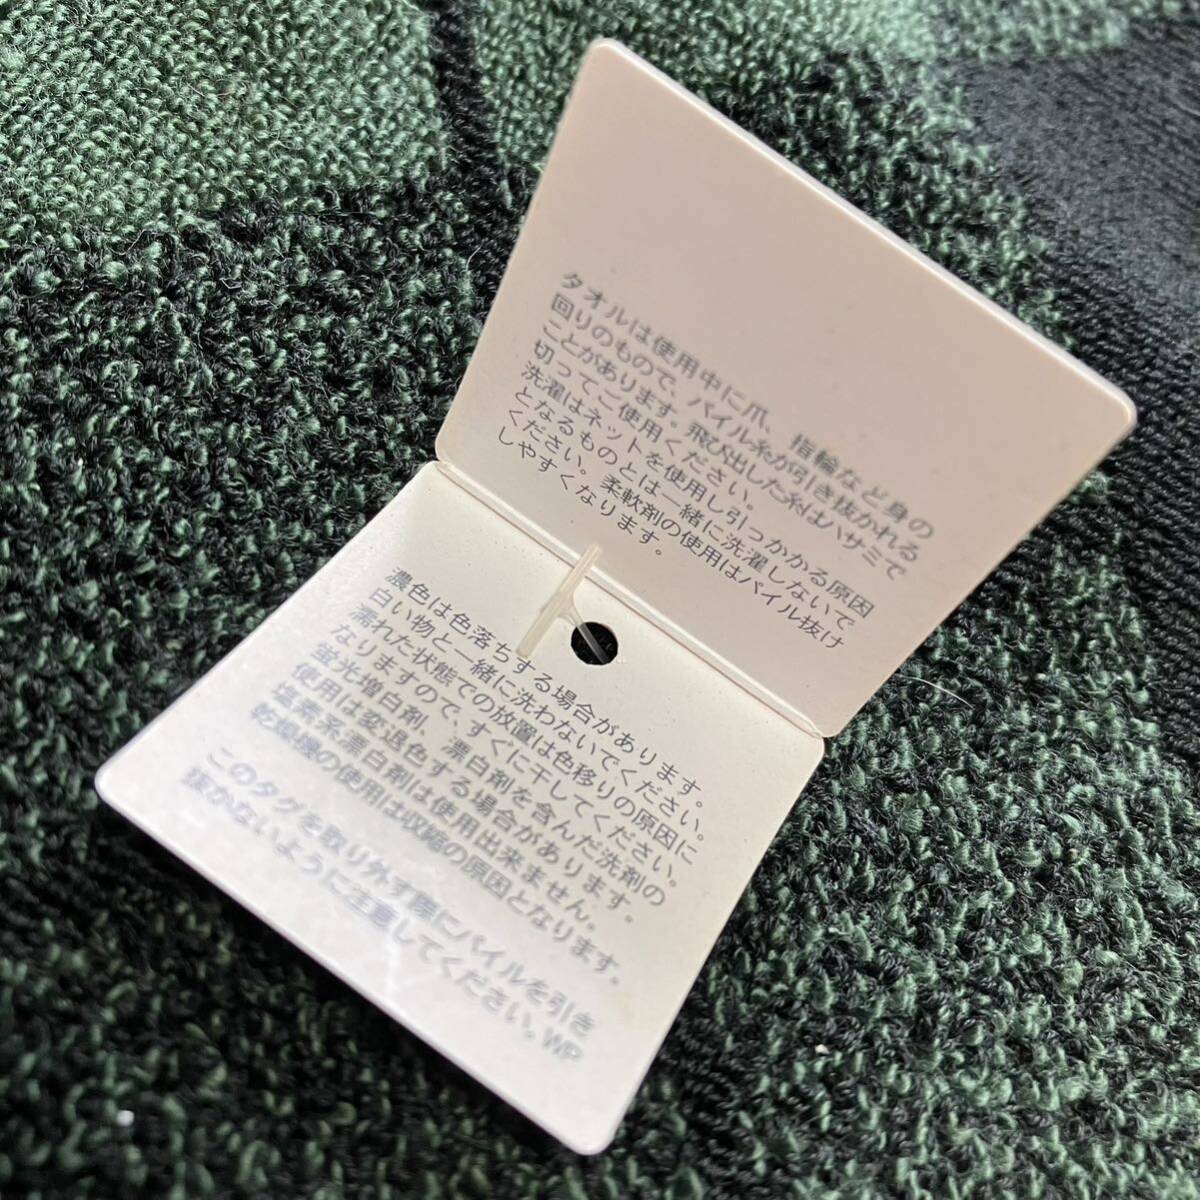 タオルは使用中に爪、指輪など身の
回りのもので、パイル糸が引き抜かれる
ことがあります。飛び出した糸はハサミで
切ってご使用ください。
洗濯はネットを使用し引っかかる原因
となるものとは一緒に洗濯しないで
ください。柔軟剤の使用はパイル抜け
しやすくなります。
濃色は色落ちする場合があります。
白い物と一緒に洗わないでください。
濡れた状態での放置は色移りの原因に
なりますので、すぐに干してください。
蛍光増白剤、漂白剤を含んだ洗剤の
使用は変退色する場合があります。
塩素系漂白剤は使用出来ません。
乾燥機の使用は収縮の原因となります。
このタグを取り外す際にパイルを引き
抜かないように注意してください。WP